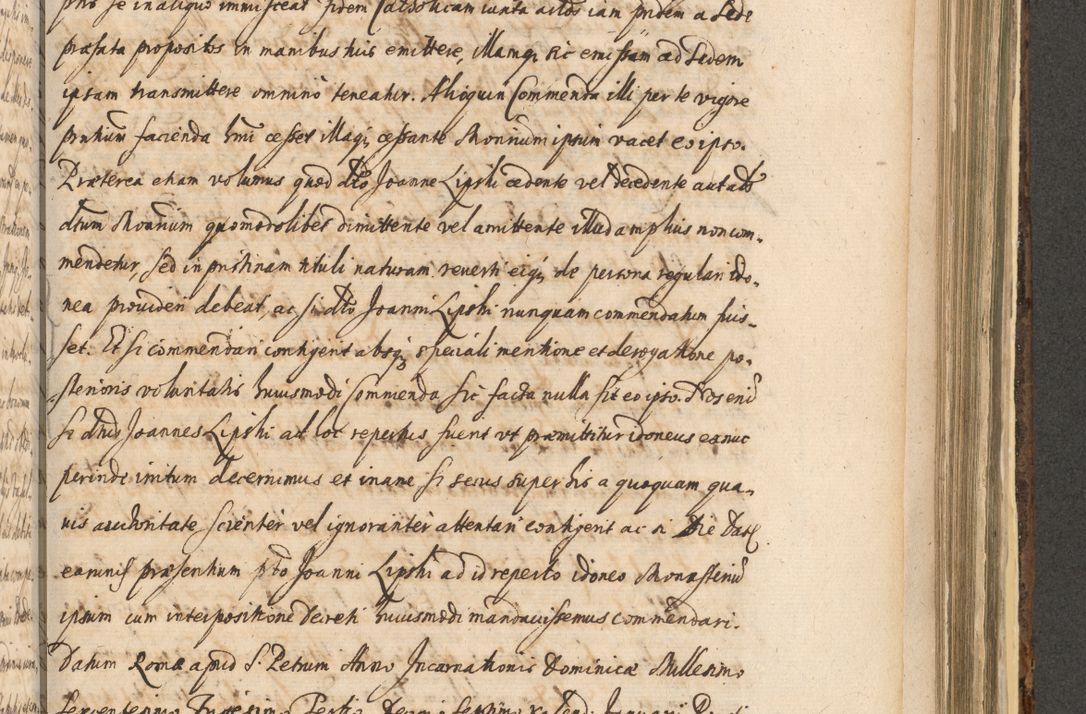 se in aliquo immisceat fidem Catholicam iuxta artos iam pridem a Sede
præfata propositos in manibus tuis emittere, illamq; sic emissam ad Sedem
ipsam transmittere omnino teneatur. Alioquin Commenda illi per te vigore
pntium facienda hmi cesset illaq; cessante Monrium ipsum vacet eo ipso.
Præterea etiam volumus quod dto Joanne Lipski cedente vel decedente aut als
dtum Monrium quomodolibet dimittente vel amittente illud amplius non com-
mendetur, sed in pristinam tituli naturam reverti eiq; de persona regulari ido-
nea provideri debeat, ac si dto Joanni Lipski nunquam commendatum fuis-
set. Et si commendari contigerit absq; speciali mentione et derogatione po-
sterioris voluntatis huiusmodi Commenda sic facta nulla sit eo ipso. Nos eni
si dtus Joannes Lipski ad hoc repertus fuerit vt præmittitur idoneus ex nuc
perinde irritum decernimus et inane si secus super his a quoquam qua-
uis authoritate scienter vel ignoranter attentari contigerit ac si Die Dat
earund præsentium pto Joanni Lipski ad id reperto idoneo Monasteriu
ipsum cum interpositione decreti huiusmodi mandavissemus commendari.
Datum Romæ apud S. Petrum Anno Incarnationis Dominicæ Millesimo
Septentesimo Trigesimo Tertio